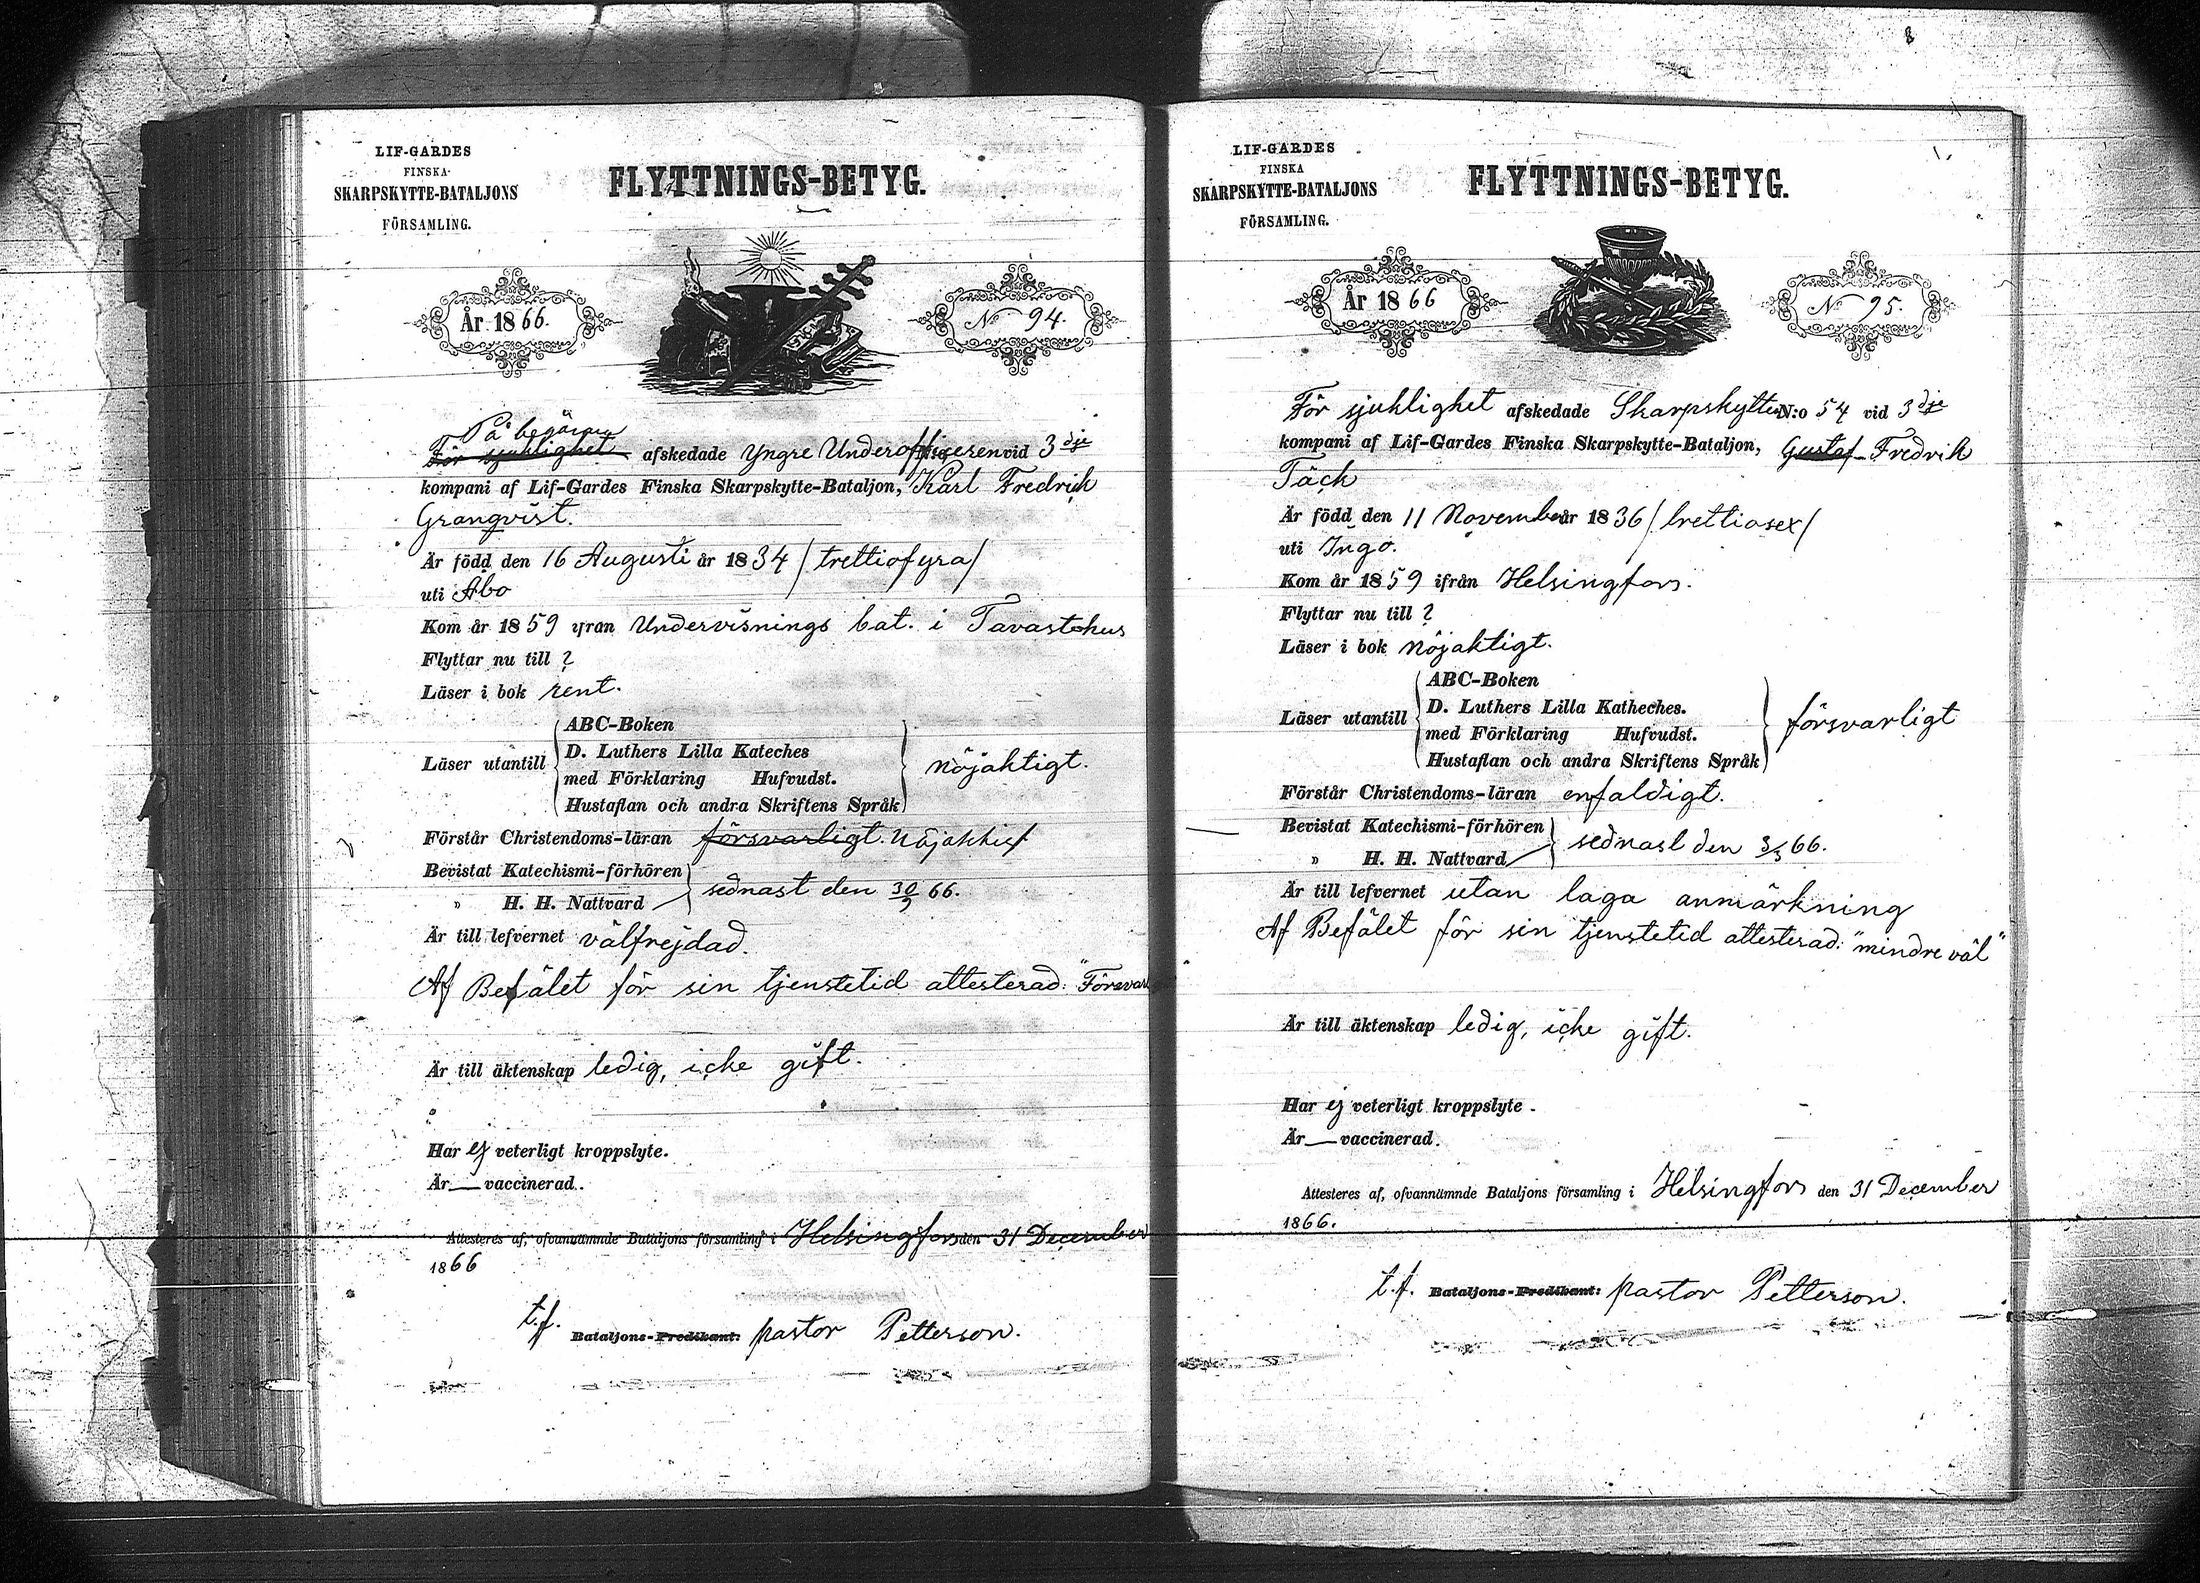 LIF-GARDES
FINSKA
SKARPSKYTTE-BATALJONS
FÖRSAMLING.
FLYTTNINGS-BETYG.
År 1866.
No 94.
På begäran
För sjuklighet afskedade Yngre Underofficeren vid 3dje
kompani af Lif-Gardes Finska Skarpskytte-Bataljon, Karl Fredrick
Granqvist.
Är född den 16 Augusti år 1834 / trettiofyra /
uti Åbo
Kom år 1859 ifrån Undervisnings bat. i Tavastehus
Flyttar nu till ?
Läser i bok rent.
Läser utantill
ABC-Boken
D. Luthers Lilla Kateches
med Förklaring Hufvudst.
Hustaflan och andra Skriftens Språk
nöjaktigt.
Förstår Christendoms-läran försvarligt. nöjaktigt
Bevistat Katechismi-förhören
" H. H. Nattvard
sednast den 66.
Är till lefvernet välfrejdad.
Af Befälet för sin tjenstetid attesterad: "Försvarl
Är till äktenskap ledig, icke gift.
Har ej veterligt kroppslyte.
Är — vaccinerad.
Attesteres af, ofvannämnde Bataljons församling i Helsingfors den 31 December
1866
t.f. Bataljons-Predikant: pastor Petterson.
8
LIF-GARDES
FINSKA
SKARPSKYTTE-BATALJONS
FÖRSAMLING.
FLYTTNINGS-BETYG.
År 1866
No 95.
För sjuklighet afskedade Skarpskytten N:o 54 vid 3dje
kompani af Lif-Gardes Finska Skarpskytte-Bataljon, Gustaf Fredrik
Täck
Är född den 11 November år 1836 / trettiosex /
uti Ingo.
Kom år 1859 ifrån Helsingfors.
Flyttar nu till ?
Läser i bok nöjaktigt.
Läser utantill
ABC-Boken
D. Luthers Lilla Katheches.
med Förklaring Hufvudst.
Hustaflan och andra Skriftens Språk
försvarligt
Förstår Christendoms-läran enfaldigt.
Bevistat Katechismi-förhören
" H. H. Nattvard
sednast den 3/3 66.
Är till lefvernet utan laga anmärkning
Af Befälet för sin tjenstetid attesterad: "mindre väl"
Är till äktenskap ledig, icke gift.
Har ej veterligt kroppslyte.
Är — vaccinerad.
Attesteres af, ofvannämnde Bataljons församling i Helsingfors den 31 December
1866.
t.f. Bataljons-Predikant: pastor Petterson.